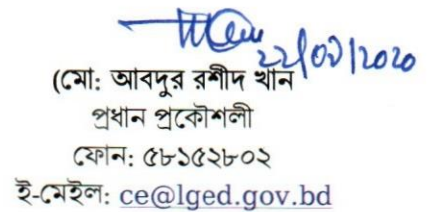 22/09/2020
(মো: আবদুর রশীদ খান
প্রধান প্রকৌশলী
ফোন: ৫৮১৫২৮০২
ই-মেইল: ce@lged.gov.bd